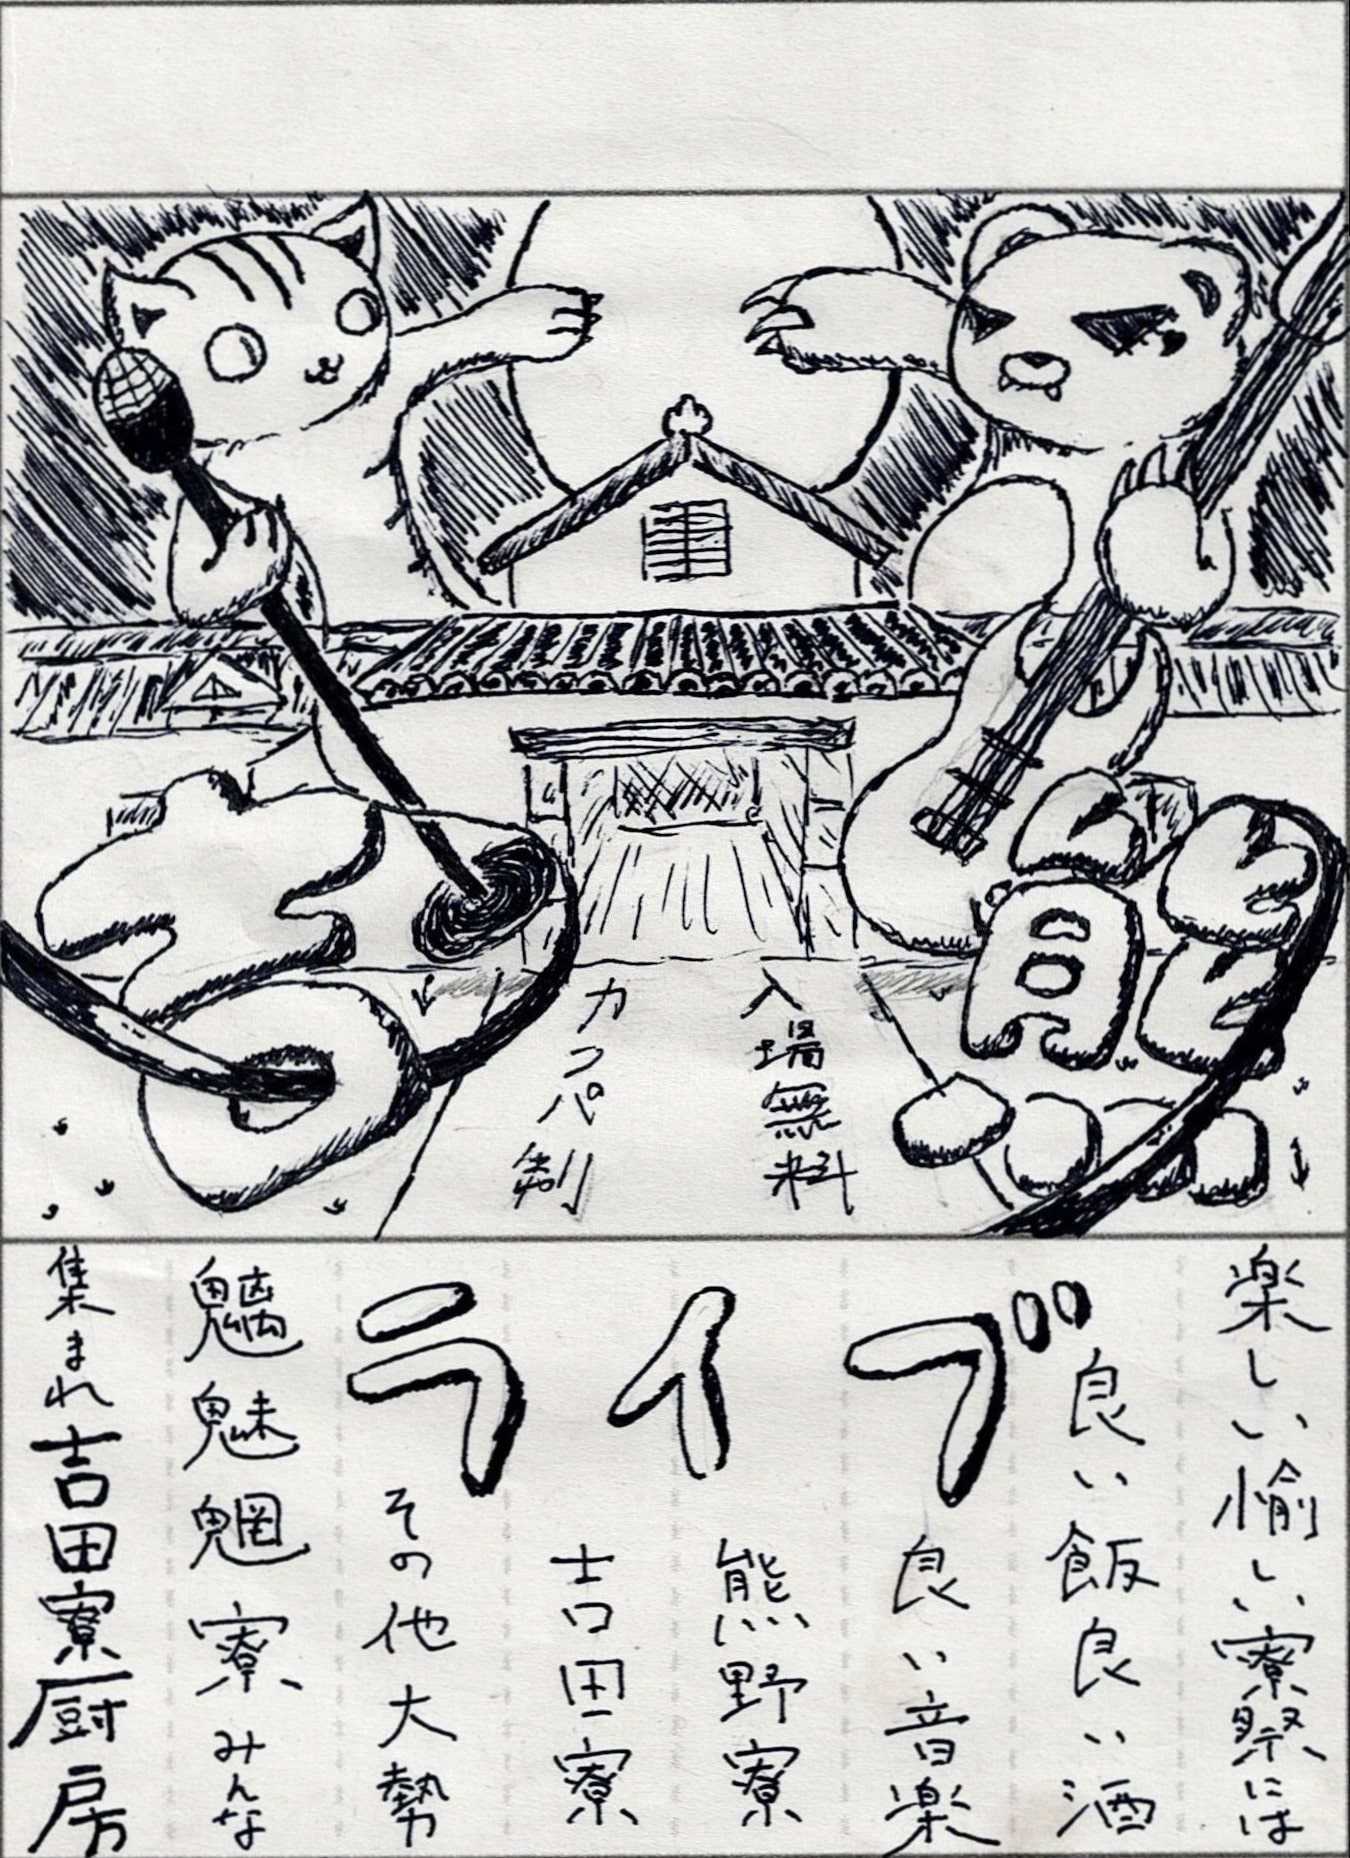 熊
吉
入場無料
カンパ制
ライブ
楽しい愉しい寮祭には
良い飯良い酒
良い音楽
熊野寮
吉田寮
その他大勢
魑魅魍寮みんな
集まれ吉田寮厨房